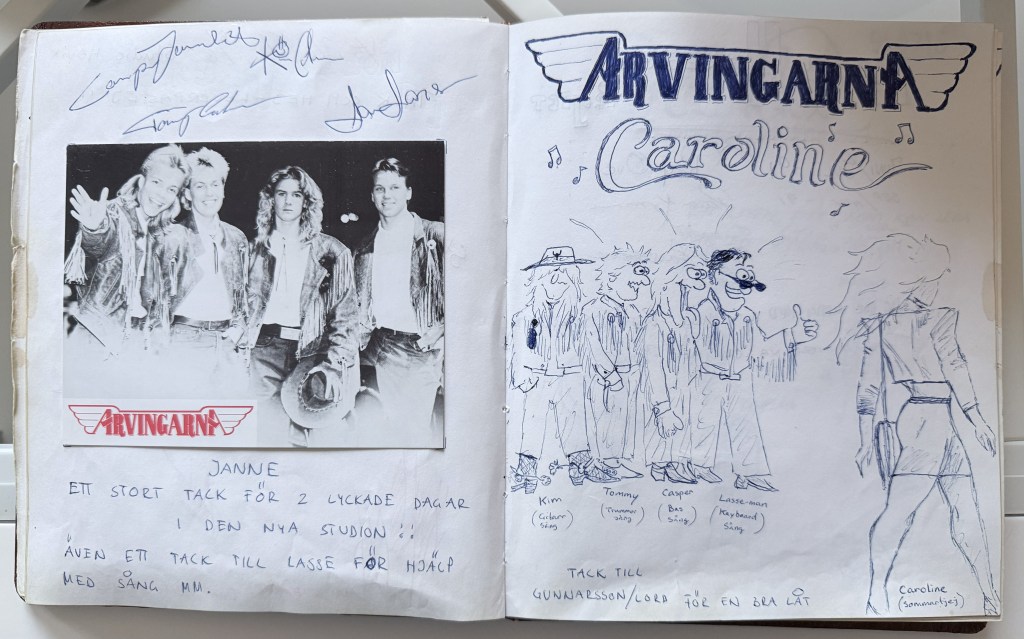 ARVINGARNA
JANNE
ETT STORT TACK FÖR 2 LYCKADE DAGAR
I DEN NYA STUDION !!
ÄVEN ETT TACK TILL LASSE FÖR HJÄLP
MED SÅNG MM.
ARVINGARNA
Caroline
Kim
(Gitarr
sång)
Tommy
(Trummor
sång)
Casper
(Bas
sång)
Lasse-man
(Keyboard
sång)
TACK TILL
GUNNARSSON/LORD FÖR EN BRA LÅT
Caroline
(sommartjej)